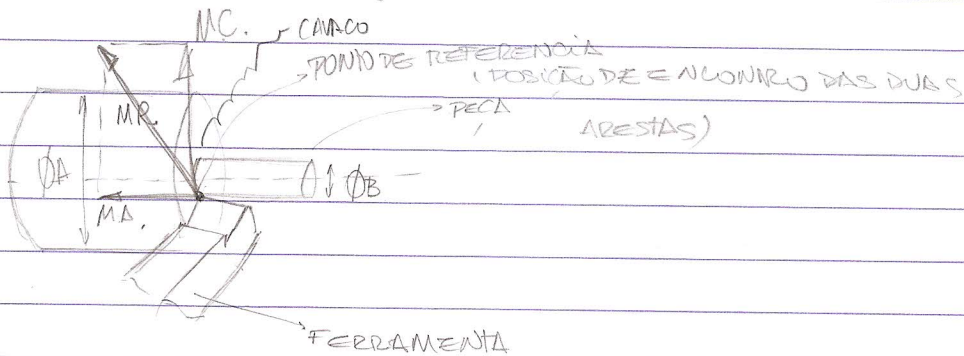 MC.
CAVACO
PONTO DE REFERENCIA
(POSIÇÃO DE ENCONTRO DAS DUAS
ARESTAS)
PEÇA
MR.
ØA
ØB
MA.
FERRAMENTA